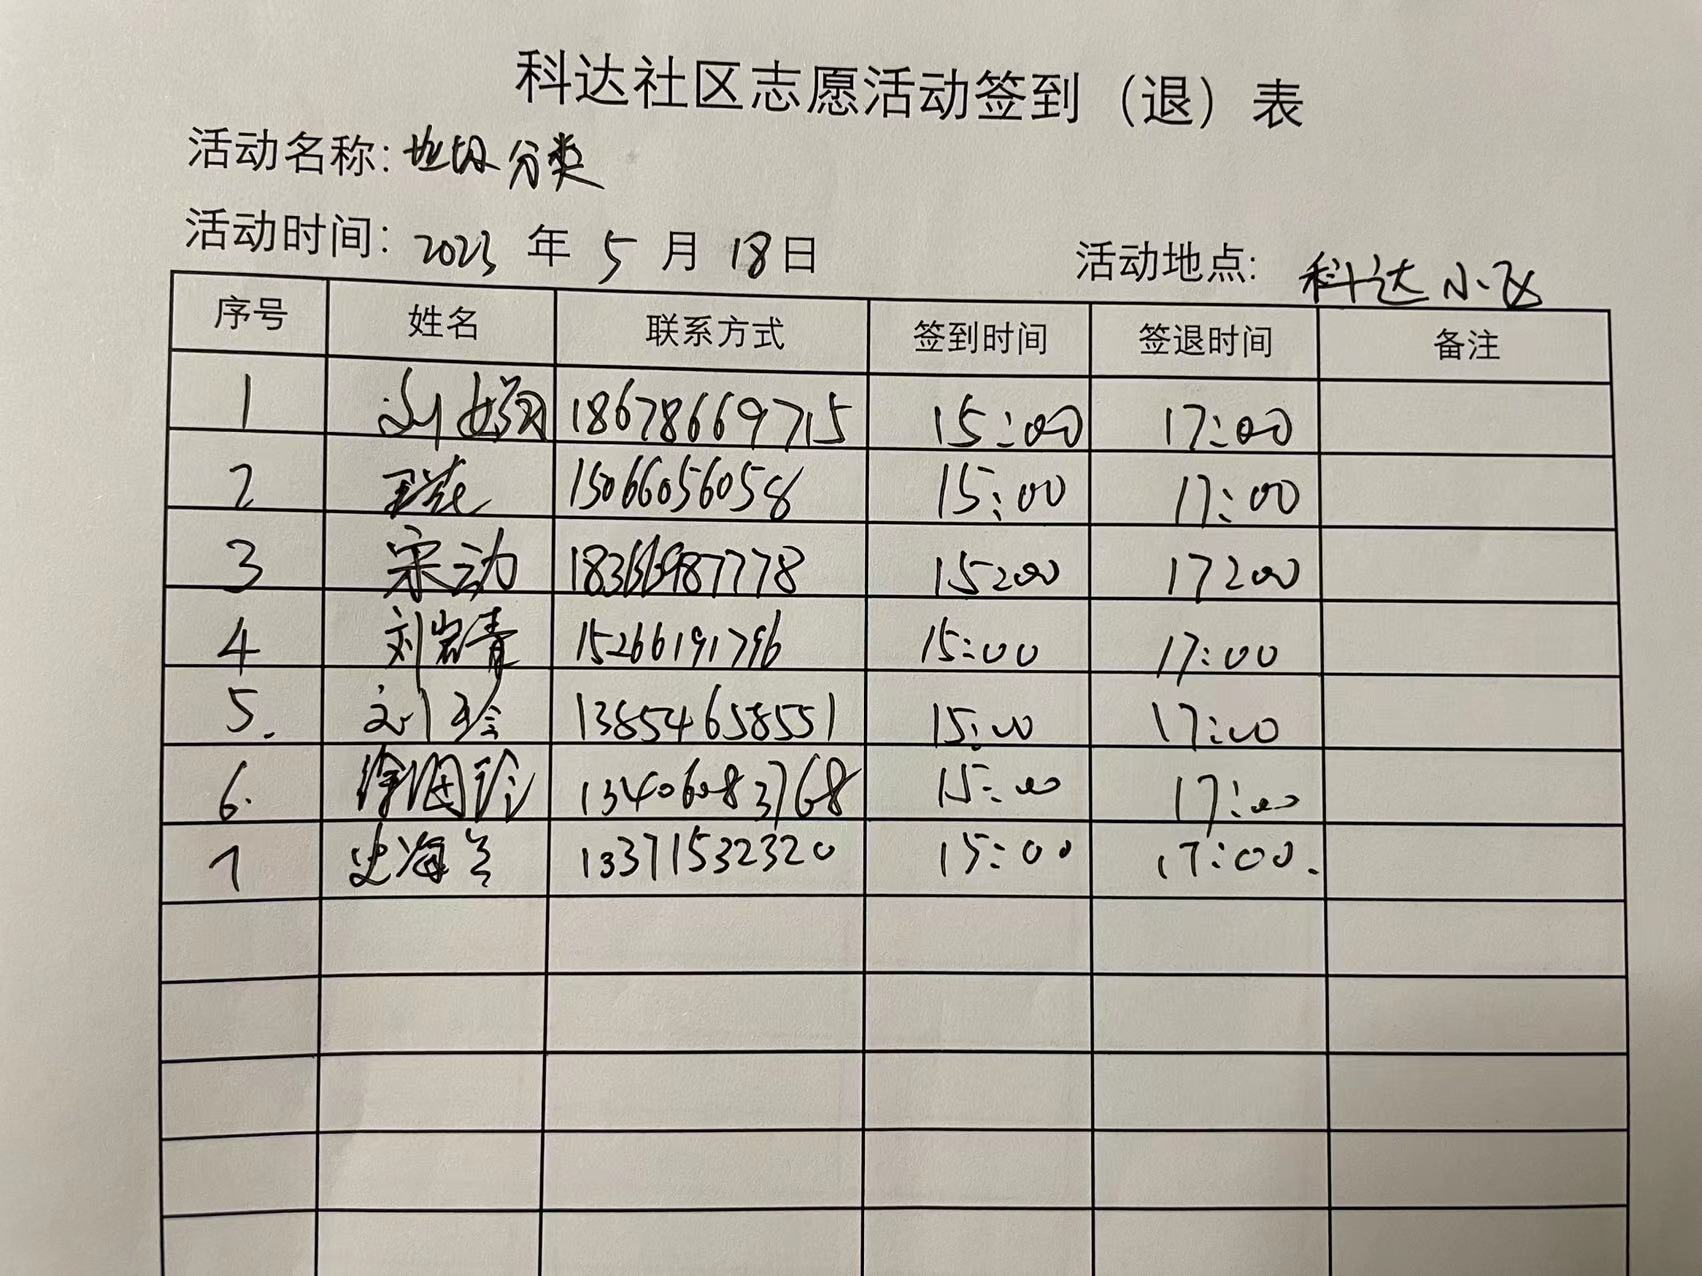 科达社区志愿活动签到（退）表
活动名称: 垃圾分类
活动时间: 2023 年 5 月 18日 活动地点: 科达小区
序号 姓名 联系方式 签到时间 签退时间 备注
1 刘 18678669715 15:00 17:00
2 王 15066056058 15:00 17:00
3 宋动 15:00 17:00
4 刘岩青 15266191796 15:00 17:00
5. 刘珍 13854658551 15:00 17:00
6. 徐国珍 13406083768 15:00 17:00
7 史海兰 13371532320 15:00 17:00.